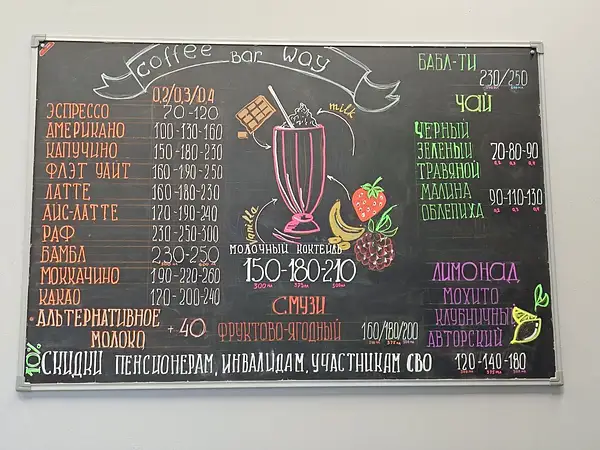 coffee BAR WAY
0,2/0,3/0,4
ЭСПРЕССО 70-120
АМЕРИКАНО 100-130-160
КАПУЧИНО 150-180-230
ФЛЭТ УАЙТ 160-190-250
ЛАТТЕ 160-180-230
АЙС-ЛАТТЕ 170-190-240
РАФ 230-250-300
БАМБЛ 230-250
МОККАЧИНО 190-220-260
КАКАО 120-200-240
АЛЬТЕРНАТИВНОЕ
МОЛОКО +40
milk
vanilla
МОЛОЧНЫЙ КОКТЕЙЛЬ
150-180-210
300 мл 375 мл 500 мл
СМУЗИ
ФРУКТОВО-ЯГОДНЫЙ 160/180/200
БАБЛ-ТИ
230/250
ЧАЙ
ЧЕРНЫЙ
ЗЕЛЕНЫЙ 70-80-90
ТРАВЯНОЙ 0,2 0,3 0,4
МАЛИНА 90-110-130
ОБЛЕПИХА 0,2 0,3 0,4
ЛИМОНАД
МОХИТО
КЛУБНИЧНЫЙ
АВТОРСКИЙ
120-140-180
10% СКИДКИ ПЕНСИОНЕРАМ, ИНВАЛИДАМ, УЧАСТНИКАМ СВО